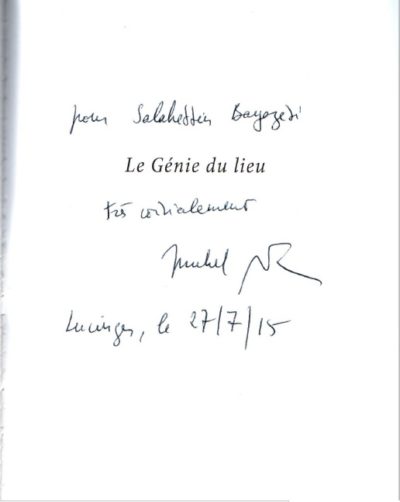 pour Salahettin Bayazedi
Le Génie du lieu
très cordialement
Michel
Lucinges, le 27/7/15